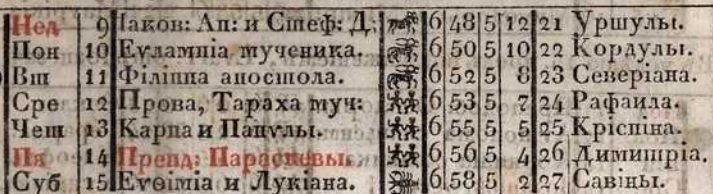 Нед 9 Іаков: Ап: и Стеф: Д: 6 48 5 12 21 Уршулы.
Пон 10 Еѵлампіа мученика. 6 50 5 10 22 Кордулы.
Вт 11 Філіппа апостола. 6 52 5 8 23 Северіана.
Сре 12 Прова, Тараха муч: 6 53 5 7 24 Рафаила.
Чет 13 Карпа и Папѵлы. 6 55 5 5 25 Кріспіна.
Пя 14 Препд: Параскевы. 6 56 5 4 26 Димитріа.
Суб 15 Еѵѳіміа и Лукіана. 6 58 5 2 27 Савіны.